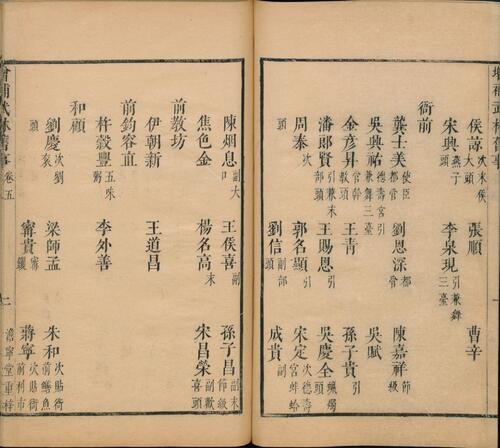 增補武林舊事
侯諒 次末侯大頭 張順 曹辛
宋興 燕子頭 李泉現 引兼舞三臺
衙前
龔士美 使臣都管 劉恩深 都管 陳嘉祥 節級
吳興祐 德壽宮引兼舞三臺 吳賦
金彥昇 管幹教頭 王青 孫子貴 引
潘郎賢 引末部頭 王賜恩 引 吳慶全
周泰 次 郭名顯 引 宋定 次德壽宮蚌蛤
頭 劉信 副部頭 成貴 副
陳烟息 副大口 王侯喜 副 孫子昌 副末節級
焦色金 楊名高 末 宋昌榮 副歡喜頭
前教坊
伊朝新 王道昌
前鈞容直
杵穀豐 五味粥 李外善
和顧
劉慶 次劉袞 梁師孟 朱和 次貼衙前鱔魚
頭 甯貴 甯钁 蔣寧 次貼衙前利市
增補武林舊事 卷五 二 澹寧堂重梓